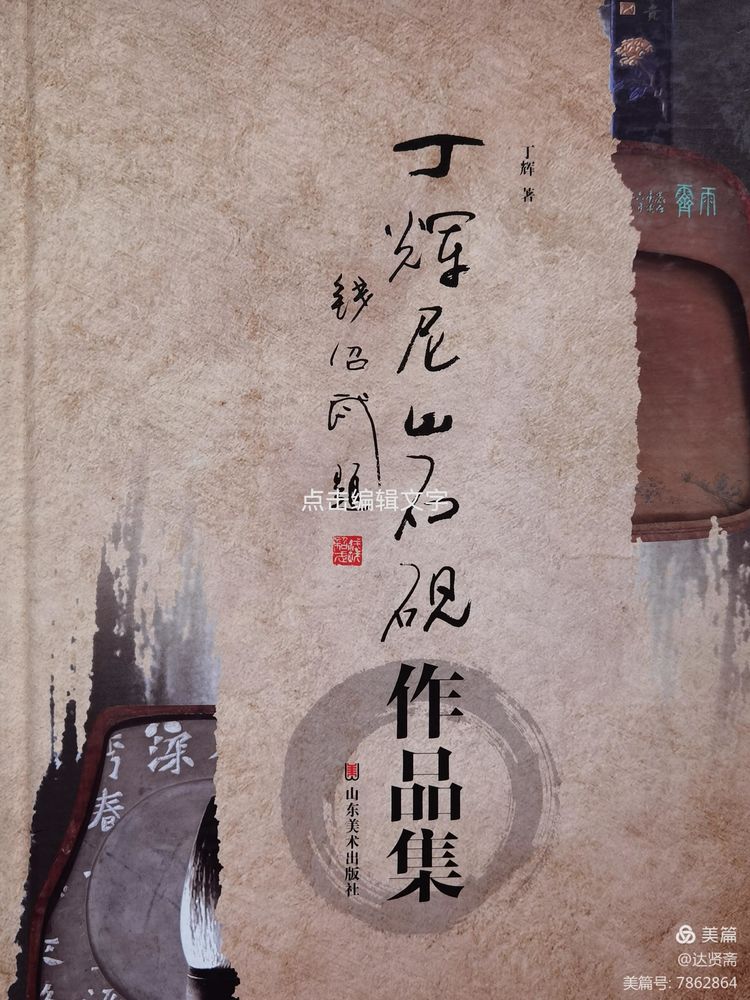 丁辉 著
丁辉尼山石砚
作品集
钱绍武题
山东美术出版社
雨霽
深
春
点击编辑文字
美篇
@达贤斋
美篇号: 7862864